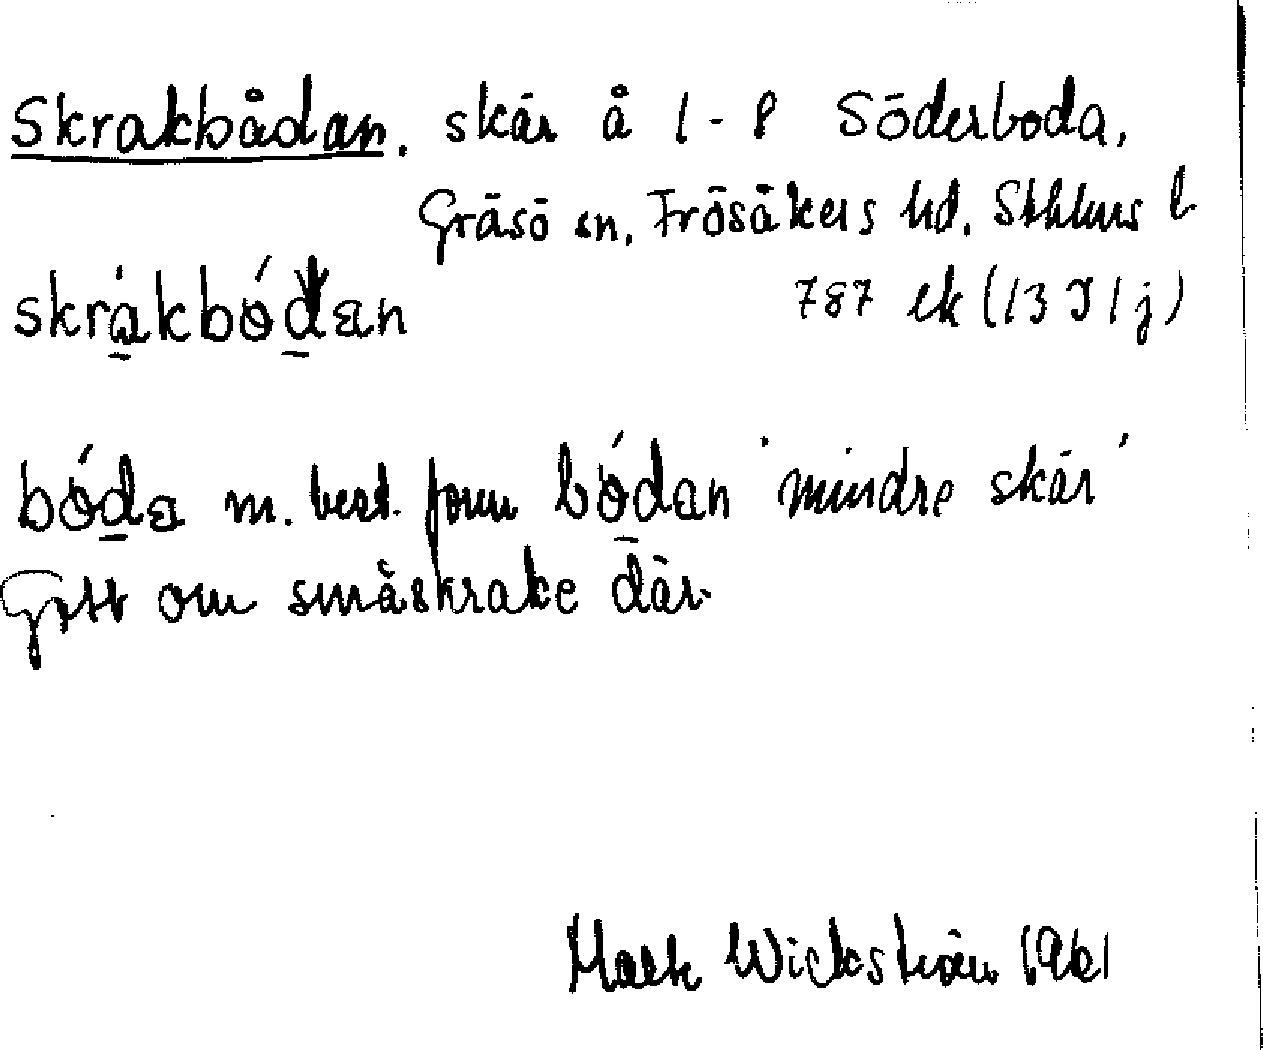 Skrakbådan. skär å 1-8 Söderboda,
Gräsö sn. Frösåkers hd. Sthlms l
skrákbódan 787 ek (13 I 1 j)
bóda m. best. form bódan 'mindre skär'
Gott om småskrake där.
Mark Wickström 1961